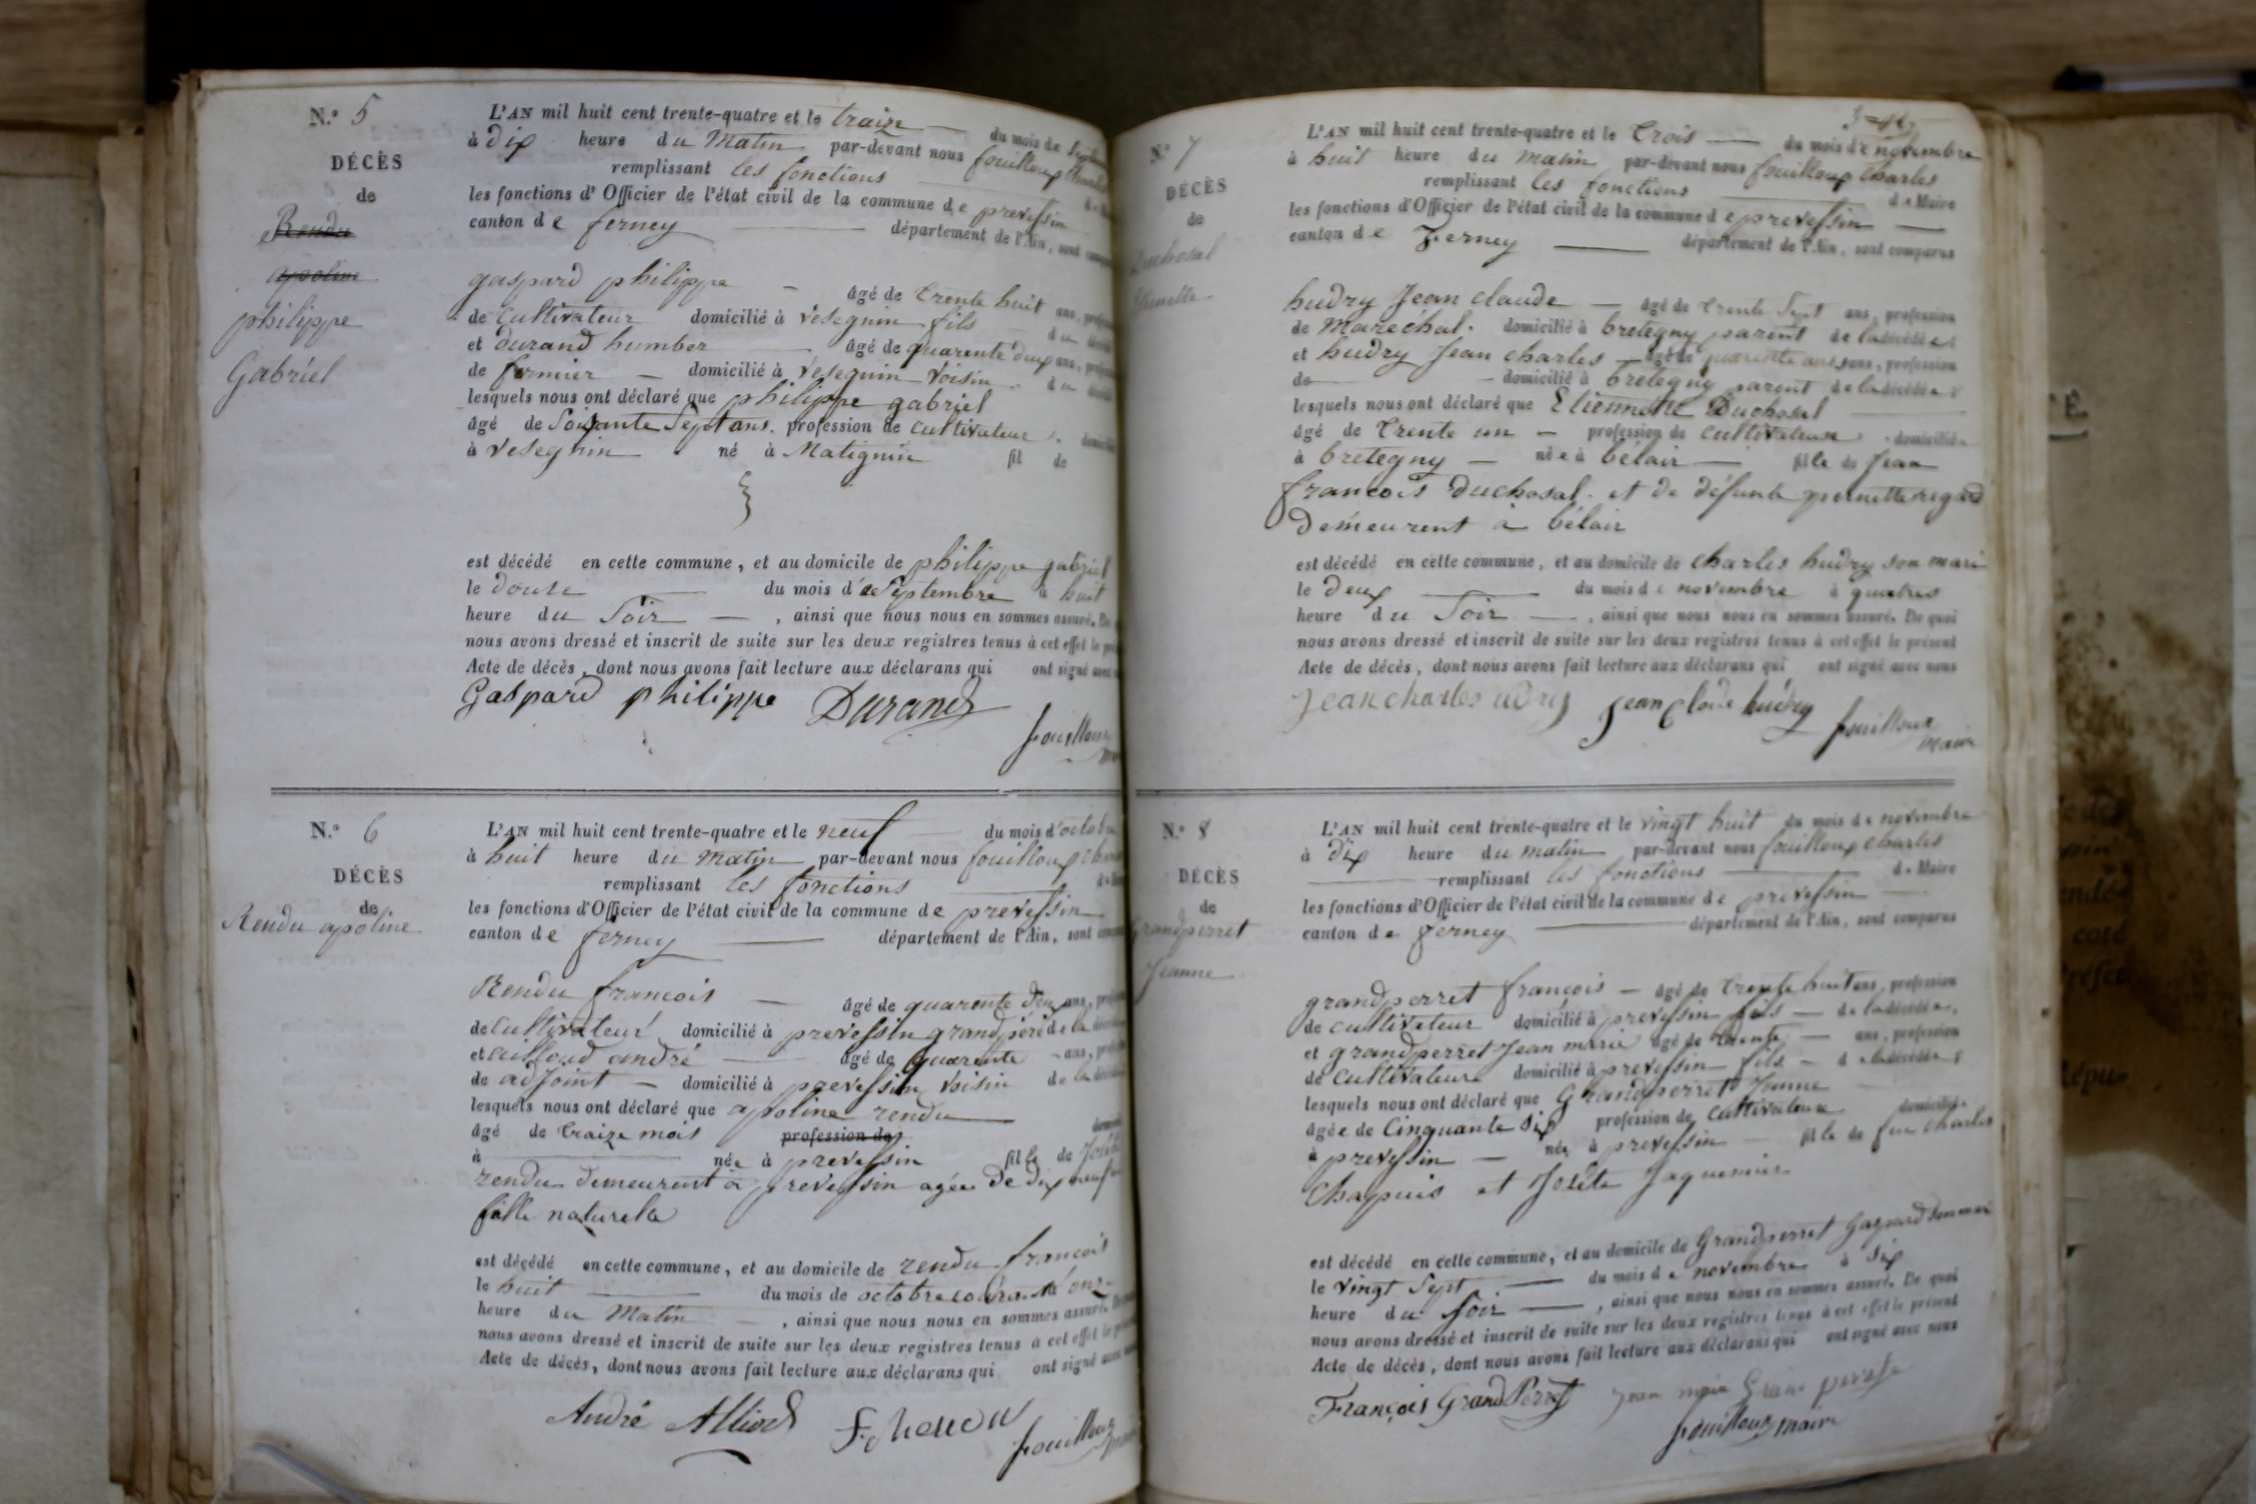 N.° 5
DÉCÈS
de
Rendu
apoline
philippe
Gabriel
L'AN mil huit cent trente-quatre et le traize du mois de
à dix heure du Matin par-devant nous fouilloux
remplissant les fonctions
les fonctions d'Officier de l'état civil de la commune de prevessin
canton de ferney département de l'Ain, sont
gaspard philippe âgé de trente huit ans,
de cultivateur domicilié à vesegnin fils du
et durand humber âgé de quarente deux ans,
de fermier domicilié à vesegnin voisin du
lesquels nous ont déclaré que philippe gabriel
âgé de Soixante Sept ans. profession de cultivateur
à vesegnin né à Matignin fil de
est décédé en cette commune, et au domicile de philippe gabriel
le douze du mois de Septembre à huit
heure du Soir, ainsi que nous nous en sommes assuré.
nous avons dressé et inscrit de suite sur les deux registres tenus à cet effet le
Acte de décès, dont nous avons fait lecture aux déclarans qui ont signé
Gaspard philippe Durand
fouilloux
N.° 6
DÉCÈS
de
Rendu apoline
L'AN mil huit cent trente-quatre et le neuf du mois d'octobre
à huit heure du Matin par-devant nous fouilloux
remplissant les fonctions
les fonctions d'Officier de l'état civil de la commune de prevessin
canton de ferney département de l'Ain, sont
Rendu francois âgé de quarente deux ans,
de cultivateur domicilié à prevessin grand père de la
et alliod andré âgé de quarente ans,
de adjoint domicilié à prevessin voisin de la
lesquels nous ont déclaré que apoline rendu
âgé de traize mois profession de
à née à prevessin fille de
rendu demeurent à prevessin agée de dix neuf
fille naturele
est décédé en cette commune, et au domicile de rendu francois
le huit du mois de octobre courant à onze
heure du Matin, ainsi que nous nous en sommes assuré.
nous avons dressé et inscrit de suite sur les deux registres tenus à cet effet le
Acte de décès, dont nous avons fait lecture aux déclarans qui ont signé
André Alliod
fouilloux
N.° 7
DÉCÈS
de
Duchosal
L'AN mil huit cent trente-quatre et le trois du mois de novembre
à huit heure du matin par-devant nous fouilloux charles
remplissant les fonctions de Maire
les fonctions d'Officier de l'état civil de la commune de prevessin
canton de Ferney département de l'Ain, sont comparus
hudry Jean claude âgé de trente Sept ans, profession
de Maréchal. domicilié à bretegny parent de la décédée
et hudry Jean charles âgé de quarente ans, profession
de domicilié à bretegny parent de la décédée
lesquels nous ont déclaré que Etiennette Duchosal
âgé de trente un profession de cultivateur domicilié
à bretegny née à bélair fille de Jean
francois Duchosal. et de défunte pernette regad
demeurent à bélair
est décédé en cette commune, et au domicile de charles hudry son mari
le deux du mois de novembre à quatres
heure du Soir, ainsi que nous nous en sommes assuré. De quoi
nous avons dressé et inscrit de suite sur les deux registres tenus à cet effet le présent
Acte de décès, dont nous avons fait lecture aux déclarans qui ont signé avec nous
Jean charles udry Jean Clode hudry fouilloux
Maire
N.° 8
DÉCÈS
de
Grandperret
Jeanne
L'AN mil huit cent trente-quatre et le vingt huit du mois de novembre
à dix heure du matin par-devant nous fouilloux charles
remplissant les fonctions de Maire
les fonctions d'Officier de l'état civil de la commune de prevessin
canton de ferney département de l'Ain, sont comparus
grandperret françois âgé de trente huit ans, profession
de cultivateur domicilié à prevessin fils de la décédée,
et grandperret Jean marie âgé de trente ans, profession
de cultivateur domicilié à prevessin fils de la décédée
lesquels nous ont déclaré que Grandperret Jeanne
âgée de Cinquante Six profession de cultivateur domicilié
à prevessin née à prevessin fille de feu charles
Chapuis et Josète Jaquemier
est décédé en cette commune, et au domicile de Grandperret Gaspard Son mari
le vingt Sept du mois de novembre à Six
heure du Soir, ainsi que nous nous en sommes assuré. De quoi
nous avons dressé et inscrit de suite sur les deux registres tenus à cet effet le présent
Acte de décès, dont nous avons fait lecture aux déclarans qui ont signé avec nous
François Grand Perret
fouilloux maire